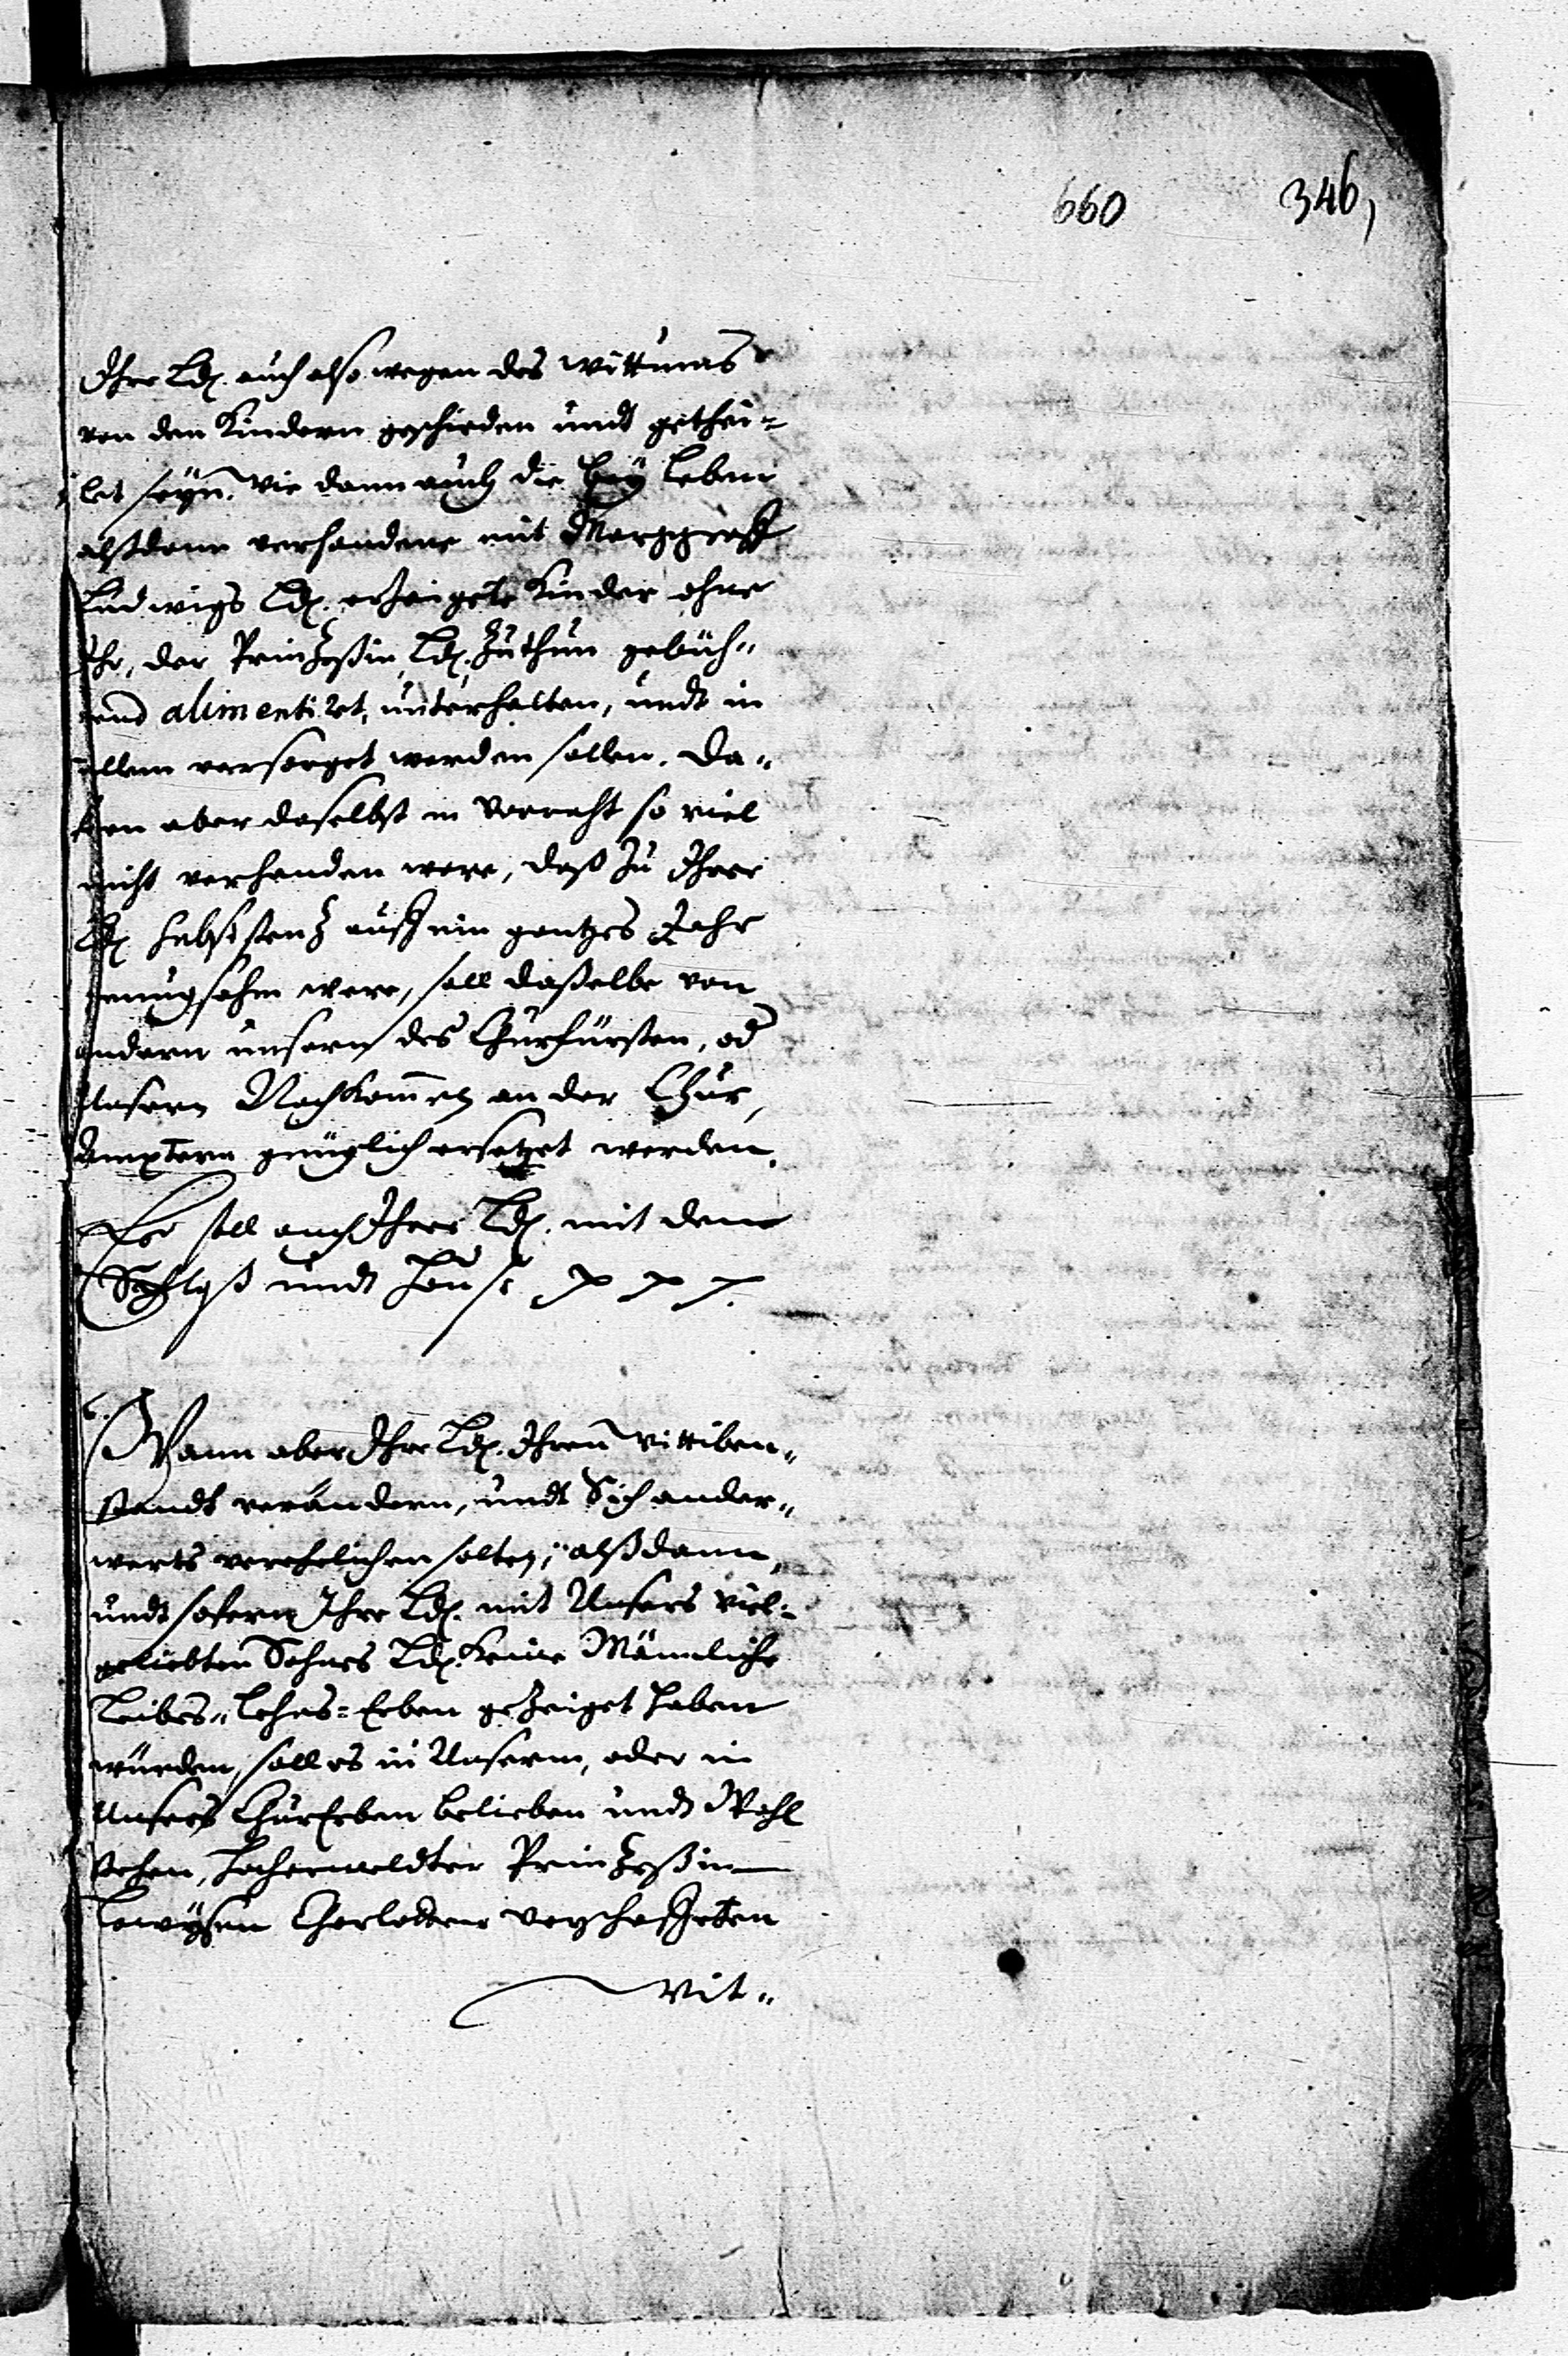 660 346,
Ihre Ld. auch also wegen des Wittumbs
von den Kindern geschieden undt gethei-
let seyn. Wie dann auch die bey Leben
alßdann verhandene mit Marggraff
Ludwigs Ld. erzeigete Kinder ohne
Ihr, der Printzeßin Ld. Zuthun gebüh-
rend alimentiret, unterhalten, undt in
allem versorget werden sollen. Da-
fern aber daselbst in Vorraht so viel
nicht verhanden were, daß zu Ihrer
Ld. subsistentz auff ein gantzes Jahr
genugsahm were, soll daßelbe von
andern unsern des Churfürsten, od
Unsern Nachkommen an der Chur,
Ämptern gnüglich ersetzet werden.
Es soll auch Ihrer Ld. mit dem
Schloß undt Hause
6. Wann aber Ihre Ld. Ihren Wittiben-
standt verändern, undt Sich ander-
werts verehelichen solten; alßdann,
undt sofern Ihre Ld. mit Unsers Viel-
geliebten Sohnes Ld. keine Männliche
Leibes-Lehns-Erben gezeiget haben
würden, soll es in Unserm, oder in
Unsers ChurErben belieben undt Wahl
stehen, Hochermeldter Printzeßin
Lowysen Charlotten verschafften
Wit-